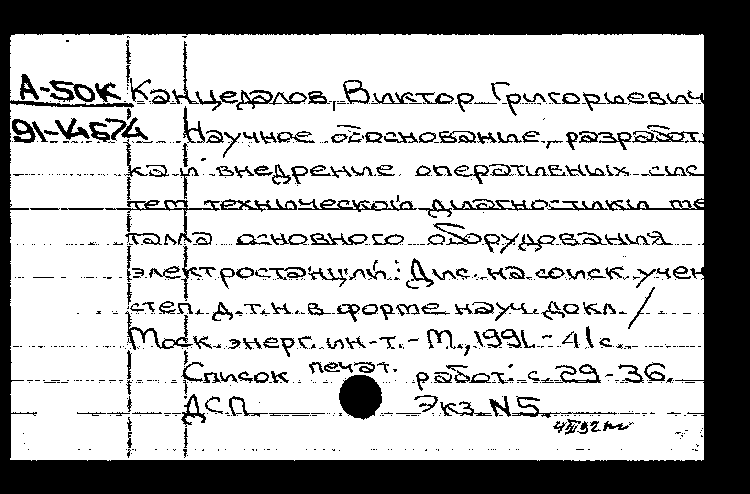 А-50к Канцедалов, Виктор Григорьевич
91-14574 Научное обоснование, разработ-
ка и внедрение оперативных сис-
тем технической диагностики ме-
талла основного оборудования
электростанций: Дис. на соиск учен
степ. д.т.н. в форме науч. докл. /
Моск. энерг. ин-т. - М., 1991. - 41 с.
Список печат. работ: с. 29-36.
ДСП. Экз. N5.